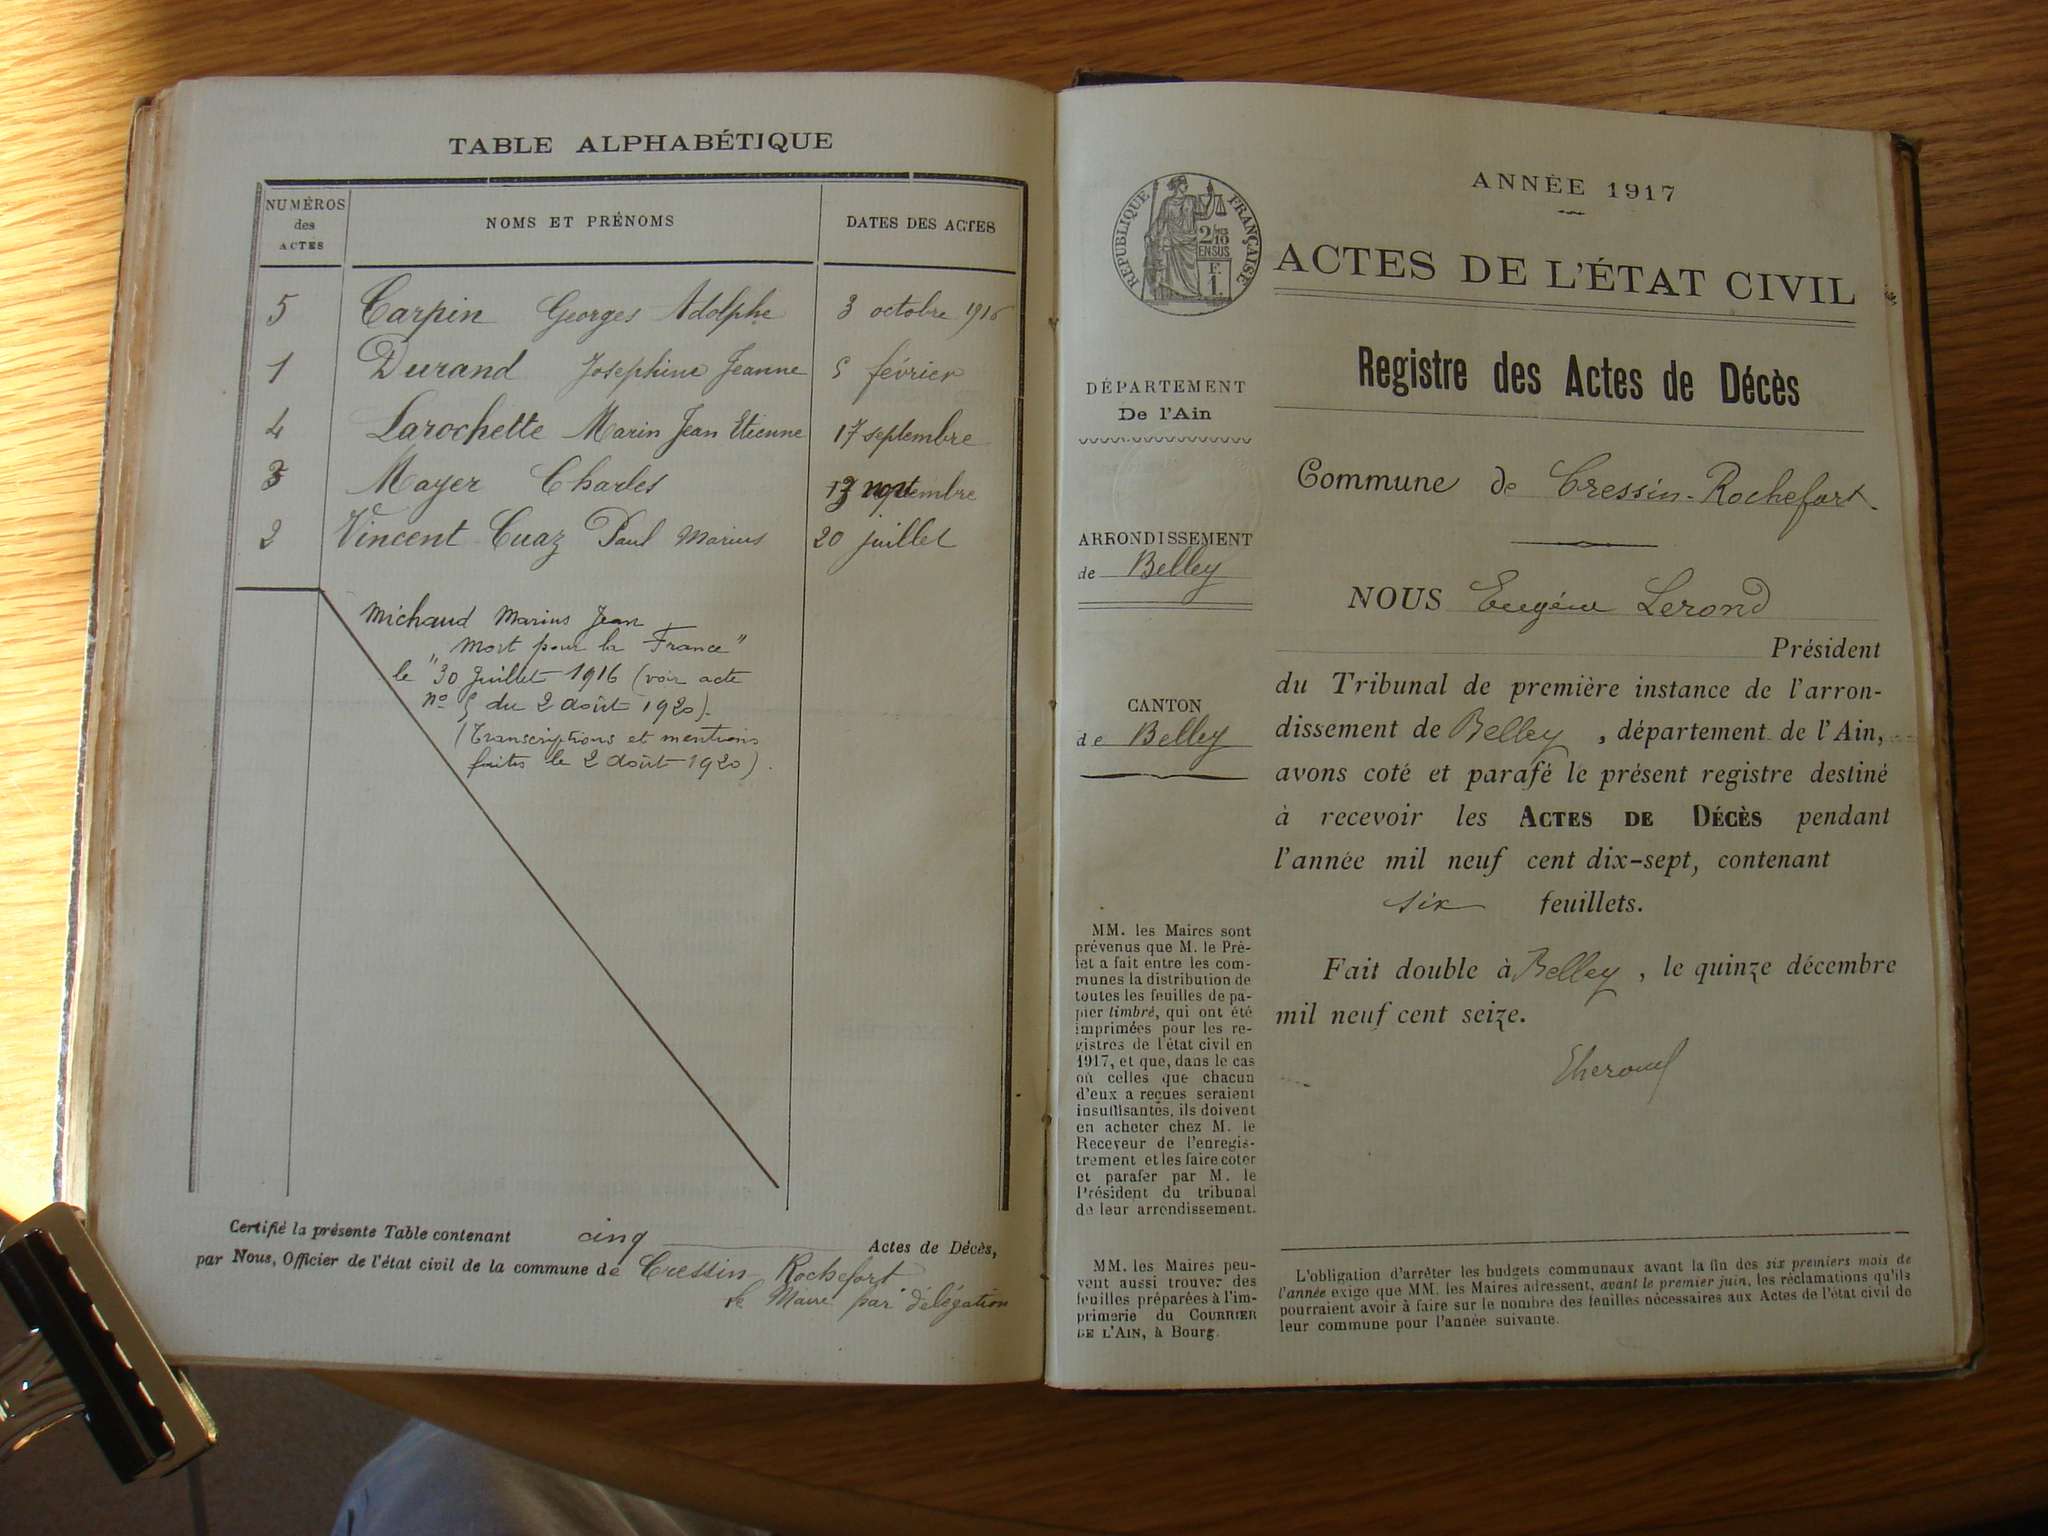 TABLE ALPHABÉTIQUE
NUMÉROS des ACTES NOMS ET PRÉNOMS DATES DES ACTES
5 Carpin Georges Adolphe 3 octobre 1916
1 Durand Joséphine Jeanne 5 février
4 Larochette Marin Jean Etienne 17 septembre
3 Mayer Charles
2 Vincent Cuaz Paul Marius 20 juillet
Michaud Marius Jean
Mort pour la France"
le "30 Juillet 1916 (voir acte
n° 5 du 2 août 1920).
(Transcriptions et mentions
faites le 2 août 1920).
Certifié la présente Table contenant cinq Actes de Décès,
par Nous, Officier de l'état civil de la commune de Cressin-Rochefort
le Maire par délégation
RÉPUBLIQUE FRANÇAISE
2/10
EN SUS
F.
1.
ANNÉE 1917
ACTES DE L'ÉTAT CIVIL
Registre des Actes de Décès
DÉPARTEMENT
De l'Ain
ARRONDISSEMENT
de Belley
CANTON
de Belley
MM. les Maires sont
prévenus que M. le Pré-
fet a fait entre les com-
munes la distribution de
toutes les feuilles de pa-
pier timbré, qui ont été
imprimées pour les re-
gistres de l'état civil en
1917, et que, dans le cas
où celles que chacun
d'eux a reçues seraient
insuffisantes, ils doivent
en acheter chez M. le
Receveur de l'enregis-
trement et les faire coter
et parafer par M. le
Président du tribunal
de leur arrondissement.
MM. les Maires peu-
vent aussi trouver des
feuilles préparées à l'im-
primerie du COURRIER
DE L'AIN, à Bourg.
Commune de Cressin-Rochefort
NOUS Eugène Lerond
Président
du Tribunal de première instance de l'arron-
dissement de Belley, département de l'Ain,
avons coté et parafé le présent registre destiné
à recevoir les ACTES DE DÉCÈS pendant
l'année mil neuf cent dix-sept, contenant
six feuillets.
Fait double à Belley, le quinze décembre
mil neuf cent seize.
L'obligation d'arrêter les budgets communaux avant la fin des six premiers mois de
l'année exige que MM. les Maires adressent, avant le premier juin, les réclamations qu'ils
pourraient avoir à faire sur le nombre des feuilles nécessaires aux Actes de l'état civil de
leur commune pour l'année suivante.